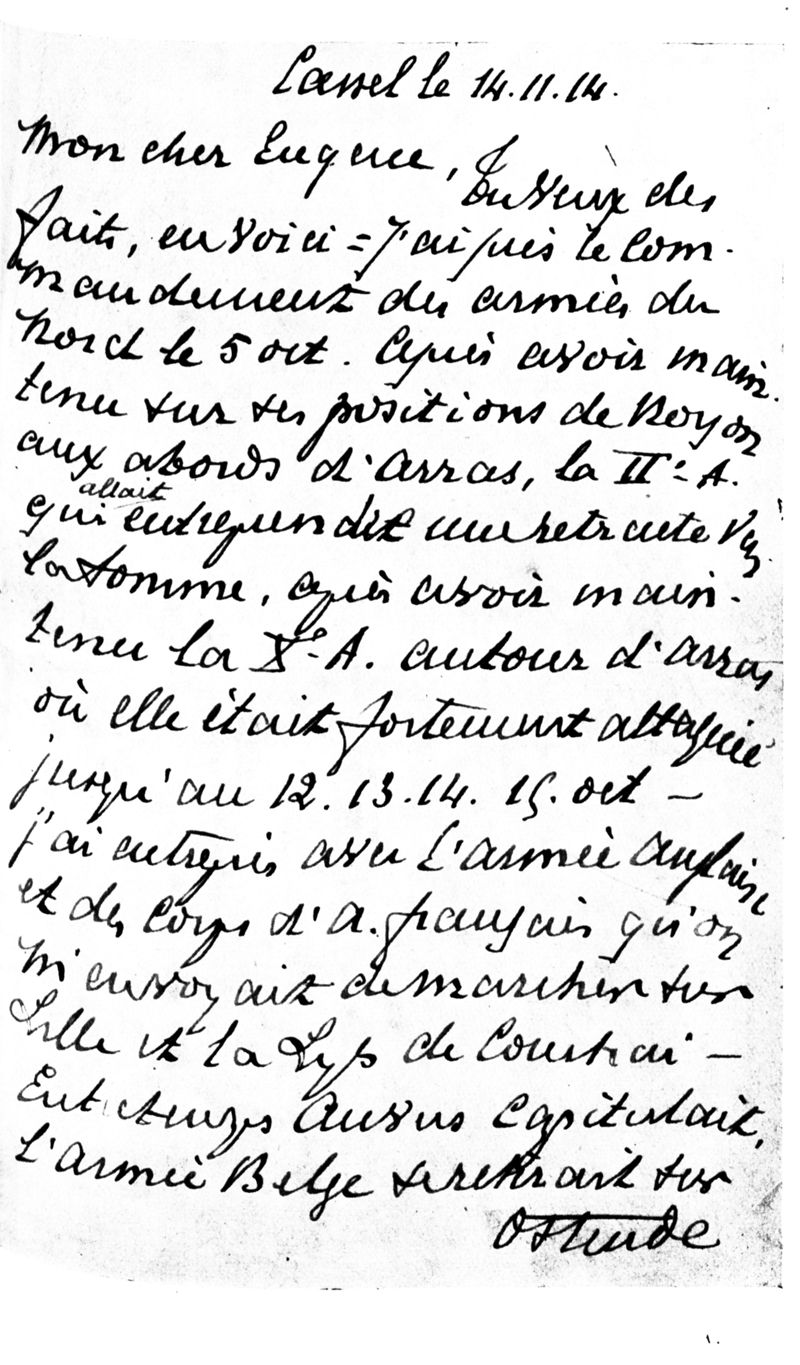 Cassel le 14.11.14.
Mon cher Eugène,
tu veux des
faits, en voici = J'ai pris le Com-
mandement des armées du
Nord le 5 oct. Après avoir main-
tenu sur ses positions de Noyon
aux abords d'Arras, la IIe A.
allait
qui entreprendit une retraite vers
la Somme, après avoir main-
tenu la Xe A. autour d'Arras
où elle était fortement attaquée
jusqu'au 12.13.14. 15. oct –
j'ai entrepris avec l'armée anglaise
et des Corps d'A. français qu'on
m'envoyait de marcher sur
Lille et la Lys de Courtrai –
Entretemps Anvers Capitulait,
l'armée Belge se retirait sur
Ostende